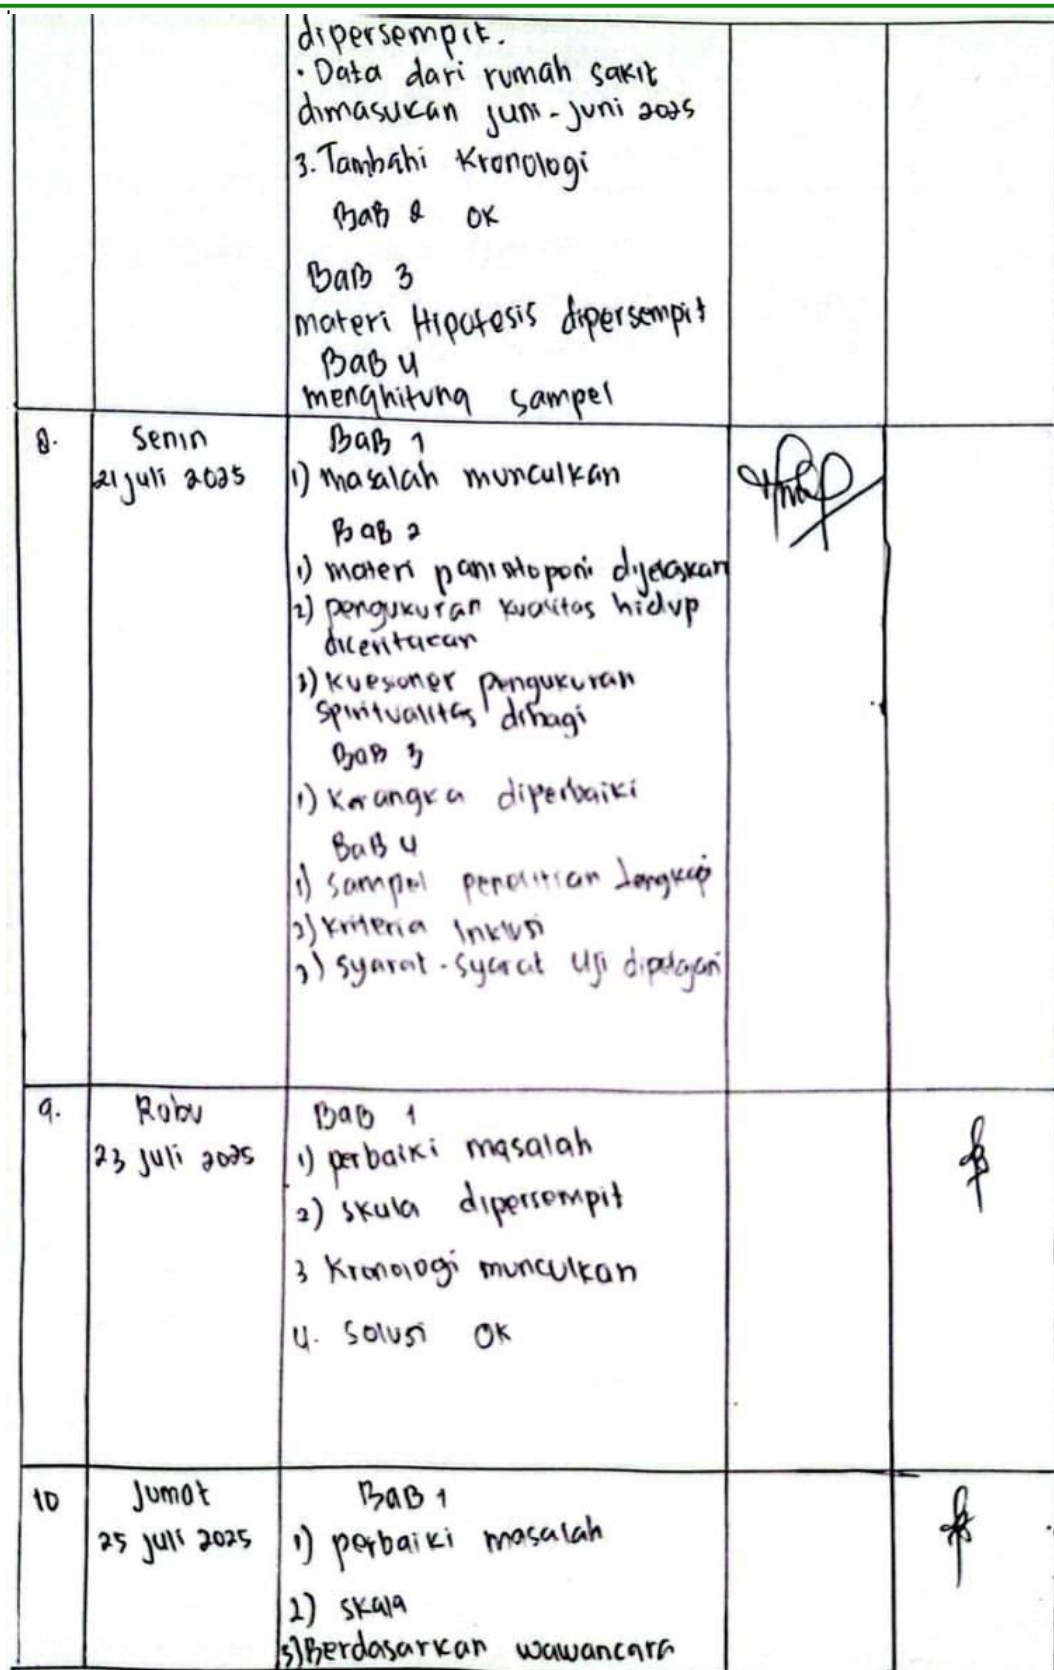 dipersempit.
· Data dari rumah sakit
dimasukan juni - juni 2025
3. Tambahi Kronologi
BaB 2 OK
BaB 3
materi Hipotesis dipersempit
BaB 4
menghitung sampel
8.
Senin
21 juli 2025
BaB 1
1) masalah munculkan
BaB 2
1) materi dijelaskan
2) pengukuran kualitas hidup
diceritakan
3) kuesioner pengukuran
spiritualitas dibagi
BaB 3
1) Kerangka diperbaiki
BaB 4
1) sampel penelitian lengkap
2) kriteria Inklusi
3) syarat - syarat Uji dipelajari
9.
Rabu
23 juli 2025
BaB 1
1) perbaiki masalah
2) skala dipersempit
3 Kronologi munculkan
4. Solusi OK
10
Jumat
25 juli 2025
BaB 1
1) perbaiki masalah
2) skala
3) Berdasarkan wawancara